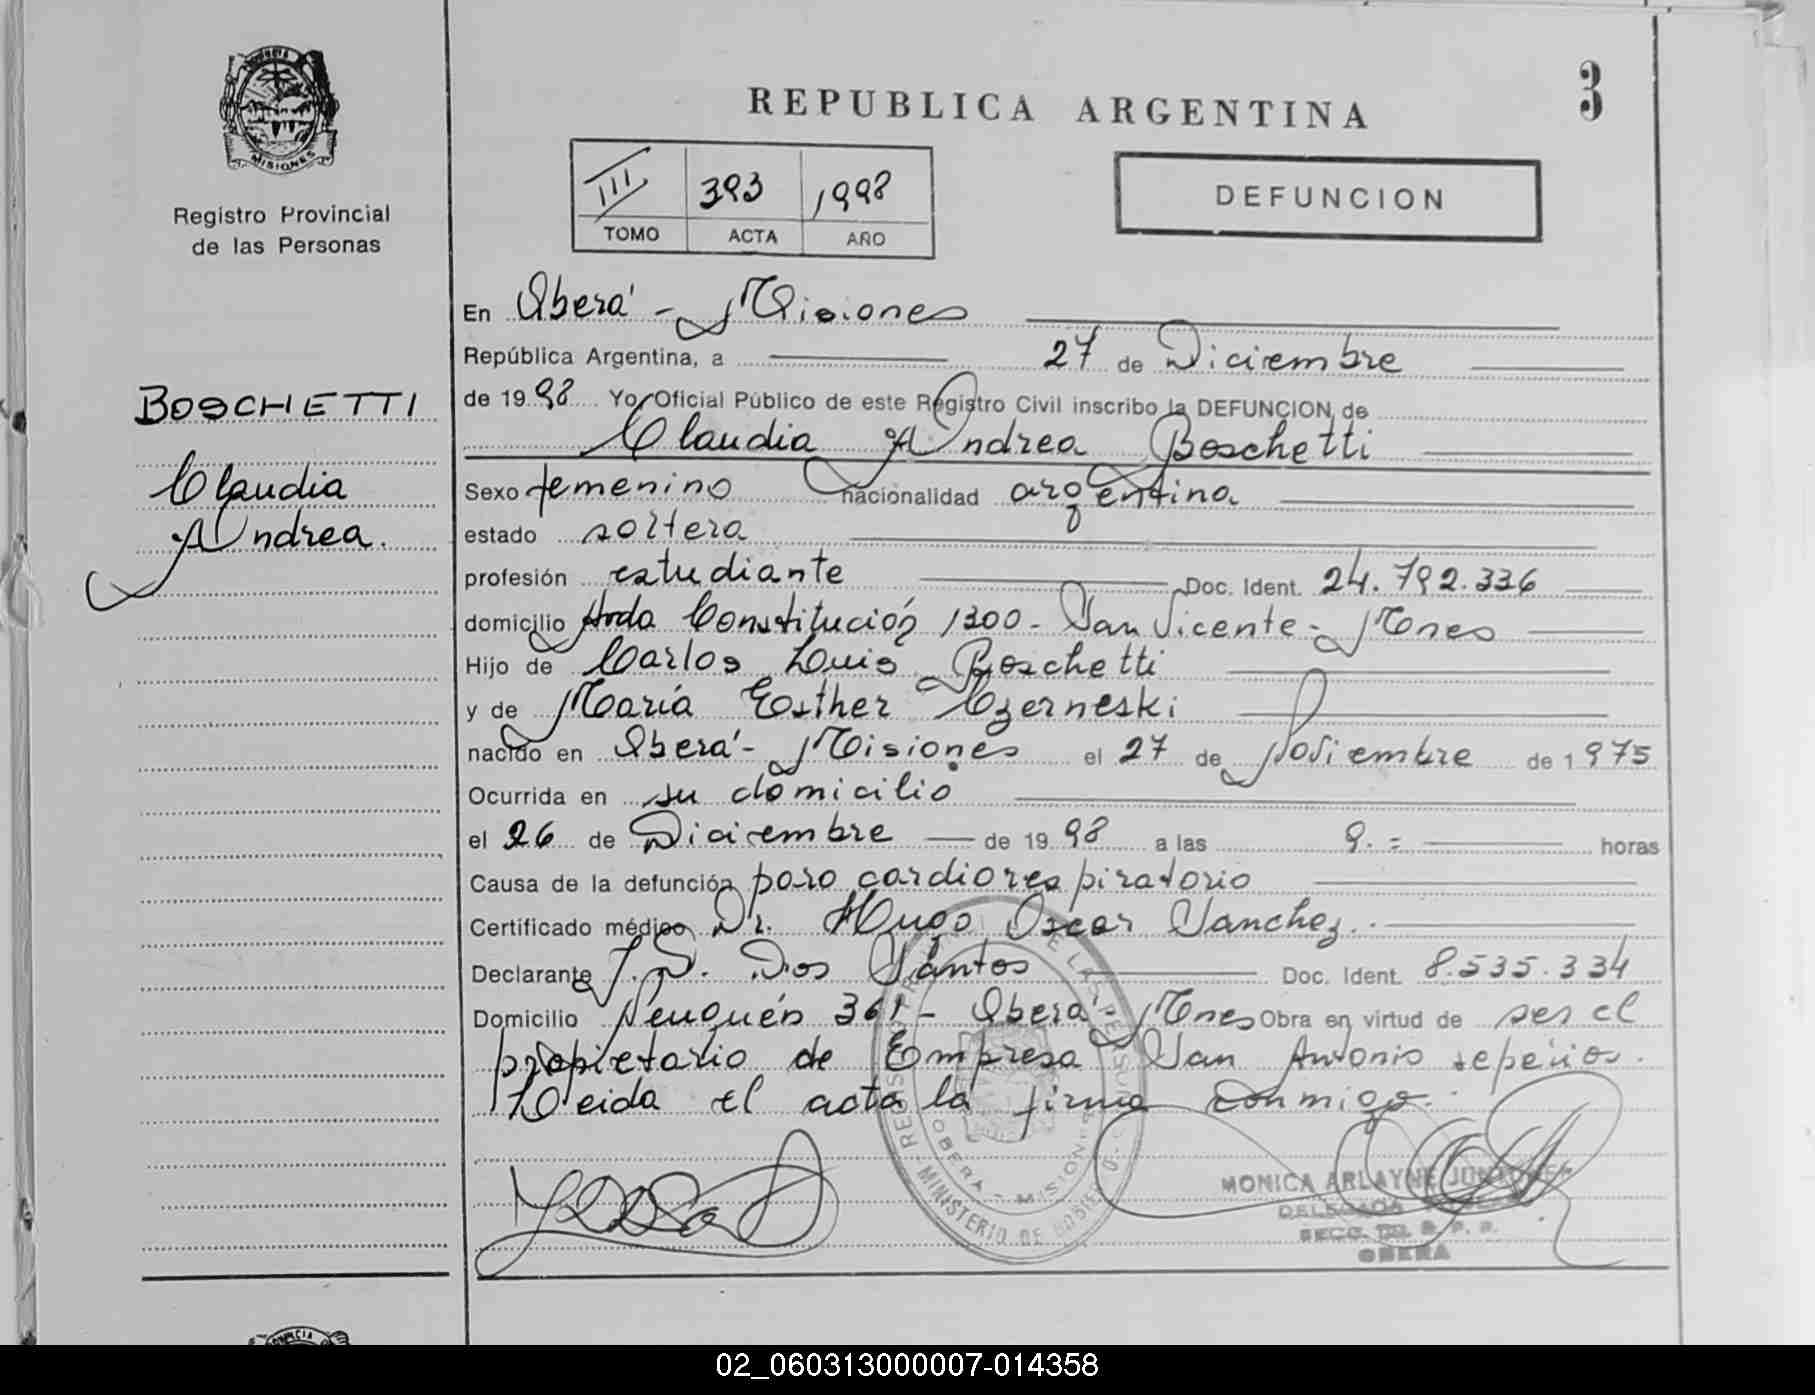 PROVINCIA
MISIONES
Registro Provincial
de las Personas
BOSCHETTI
Claudia
Andrea.
REPUBLICA ARGENTINA
3
III 393 1998
TOMO ACTA AÑO
DEFUNCION
En Oberá - Misiones
República Argentina, a 27 de Diciembre
de 1998 Yo Oficial Público de este Registro Civil inscribo la DEFUNCION de
Claudia Andrea Boschetti
Sexo femenino nacionalidad argentina
estado soltera
profesión estudiante Doc. Ident. 24.792.336
domicilio Avda Constitución 1300 - San Vicente - Mnes
Hijo de Carlos Luis Boschetti
y de María Esther Czerneski
nacido en Oberá - Misiones el 27 de Noviembre de 1975
Ocurrida en su domicilio
el 26 de Diciembre de 1998 a las 9.= horas
Causa de la defunción paro cardiorespiratorio
Certificado médico Dr. Hugo Oscar Sanchez.
Declarante J.D. Dos Santos Doc. Ident. 8.535.334
Domicilio Neuquén 361 - Oberá - Mnes Obra en virtud de ser el
propietario de Empresa San Antonio sepelios.
Leida el acta la firma conmigo.
MONICA ARLAYNE
DELEGADA
OBERA
OBERA - MISIONES
MINISTERIO DE GOBIE
02_060313000007-014358